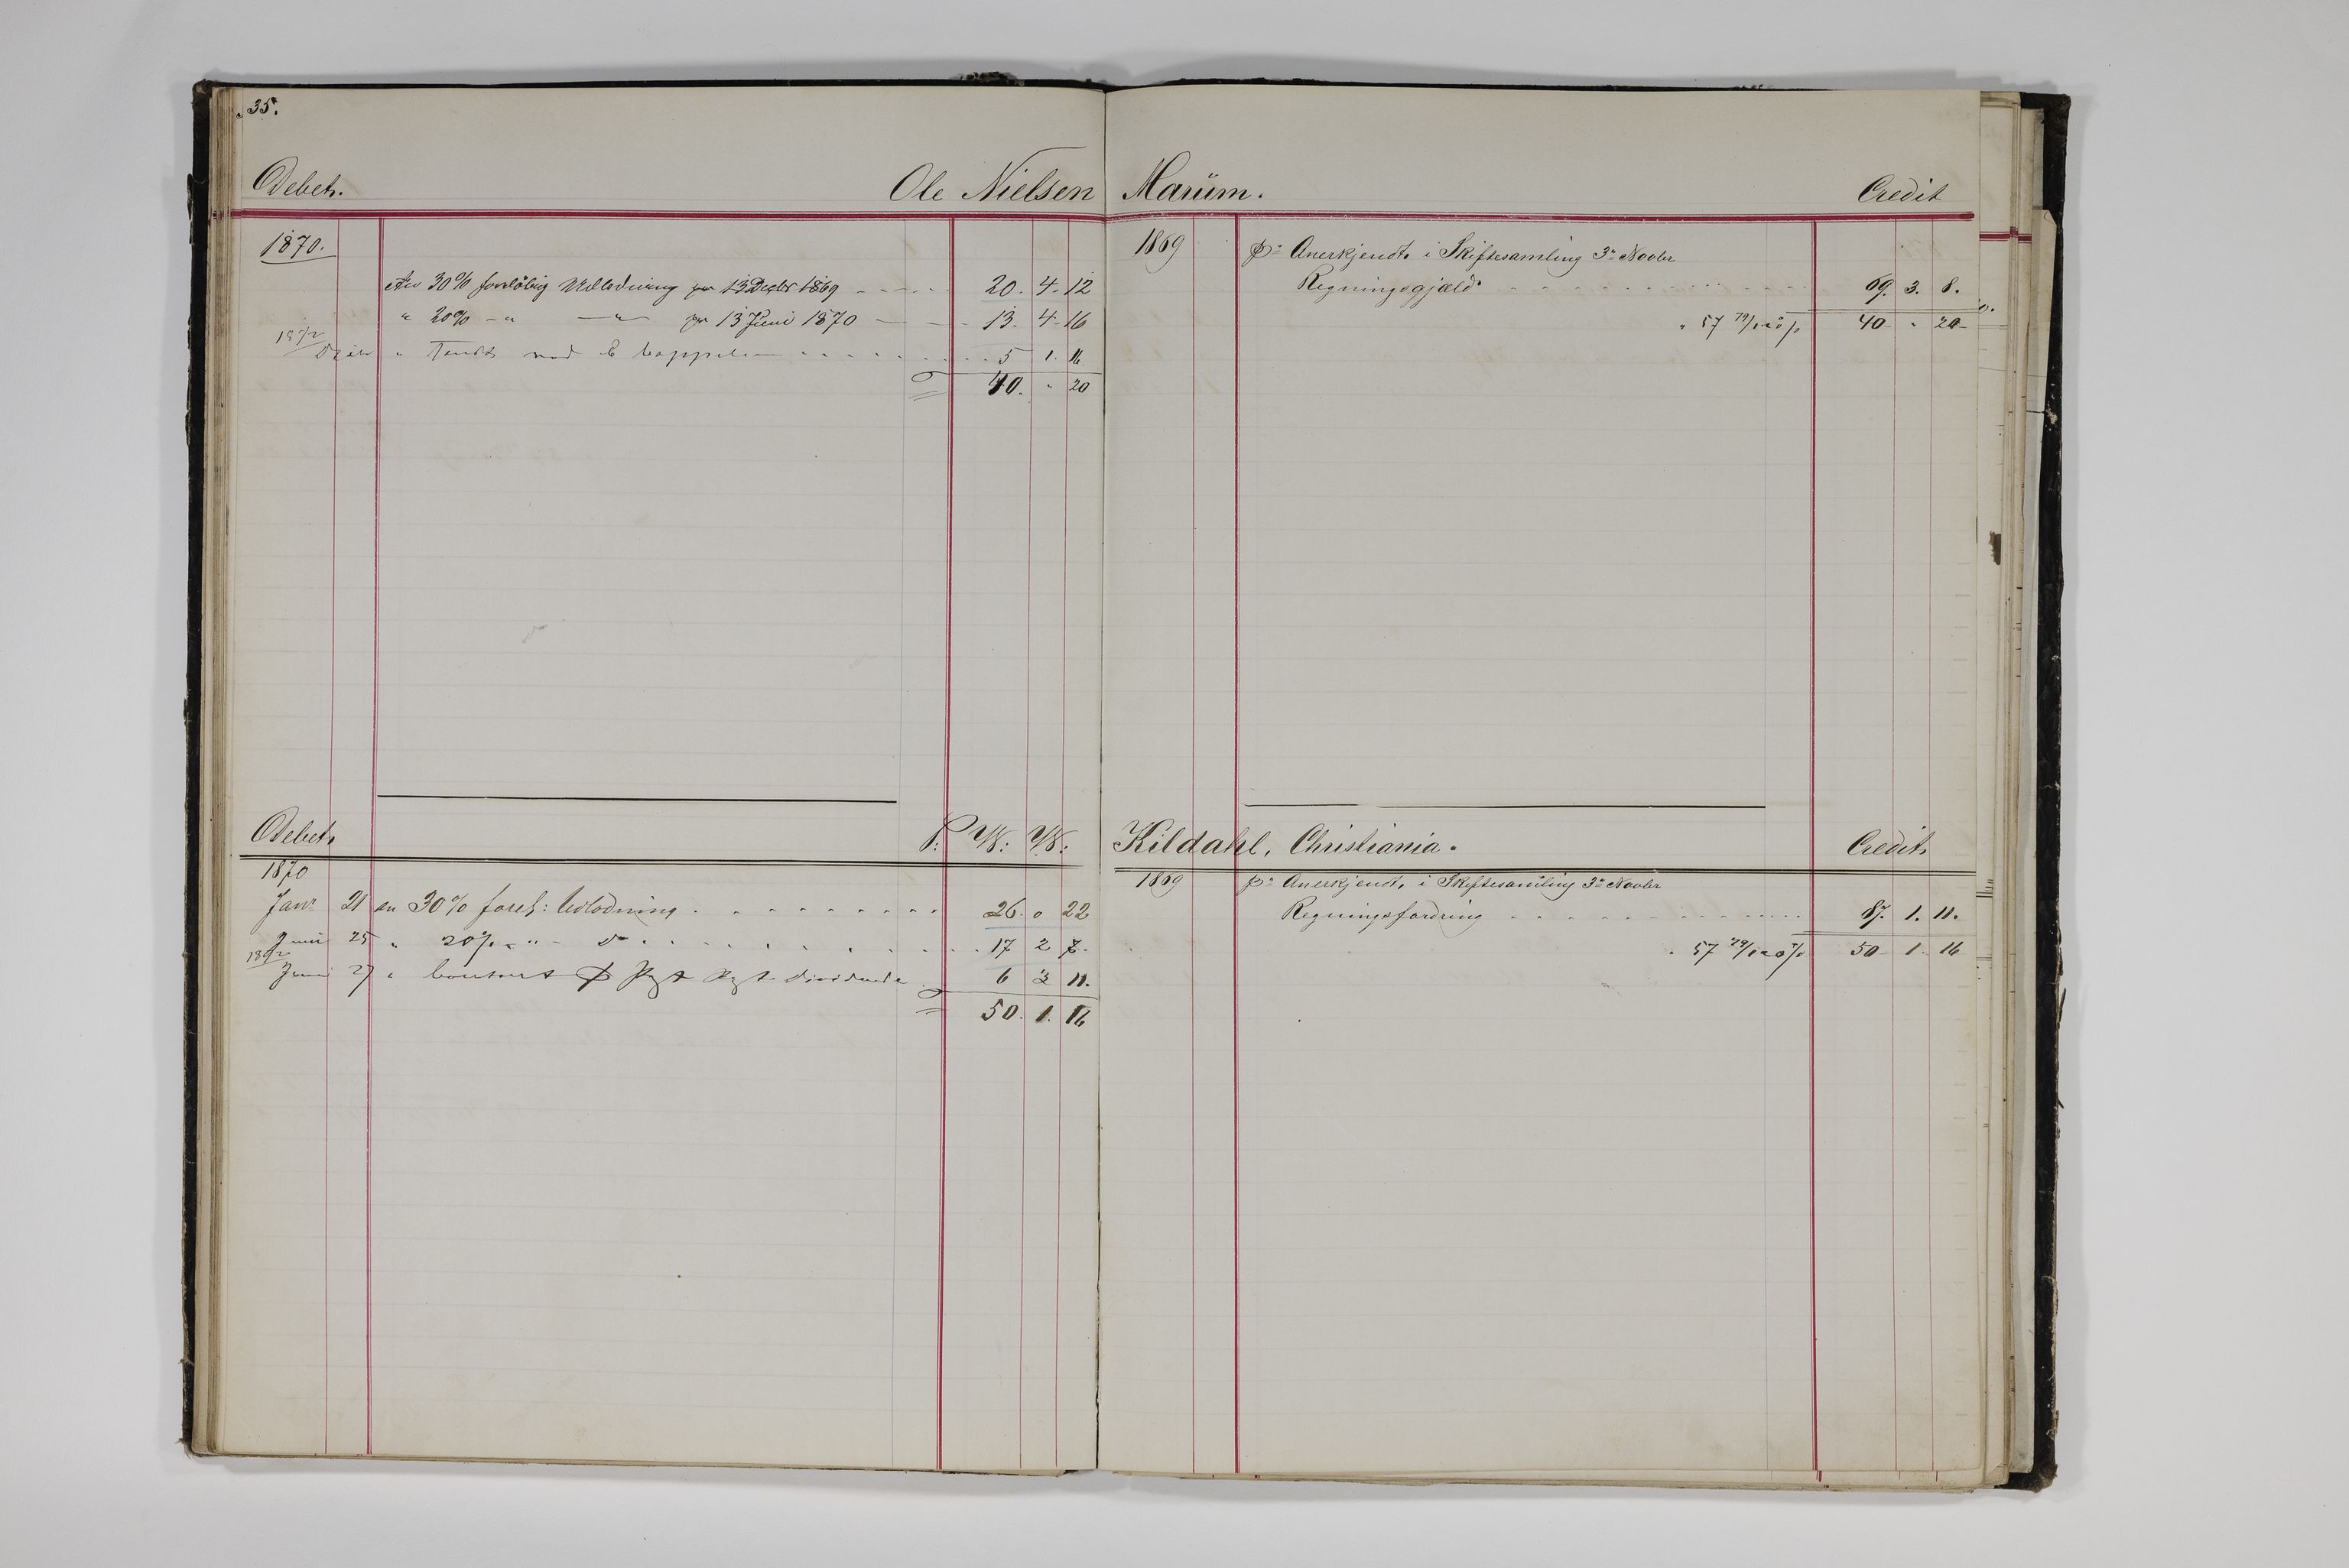 35.
Debet. Ole Nielsen
1870.
An 30% forelöbig Udlodning pr 13 Decbr 1869 20. 4. 12
" 20% - " - " - pr 13 Juni 1870 13. 4. 16
1872
" Sendt med 5 1. 16
40. " 20
Debet. P.
1870
Janr 21 an 30% forel: Udlodning 26. 0 22
Juni 25 " 20% - " - do 17 2 7.
1872
Juni 27 " Contant Dividende 6 3 11.
50. 1. 16
Marüm. Credit
1869 pr Anerkjendt i Skiftesamling 3die Novbr
Regningsgjæld 69. 3. 8.
" 57 79/100% 40 " 20
Kildahl, Christiania. Credit.
1869 pr Anerkjendt, i Skiftesamling 3die Novbr
Regningsfordring 87. 1. 11.
" 57 79/100% 50 1. 16